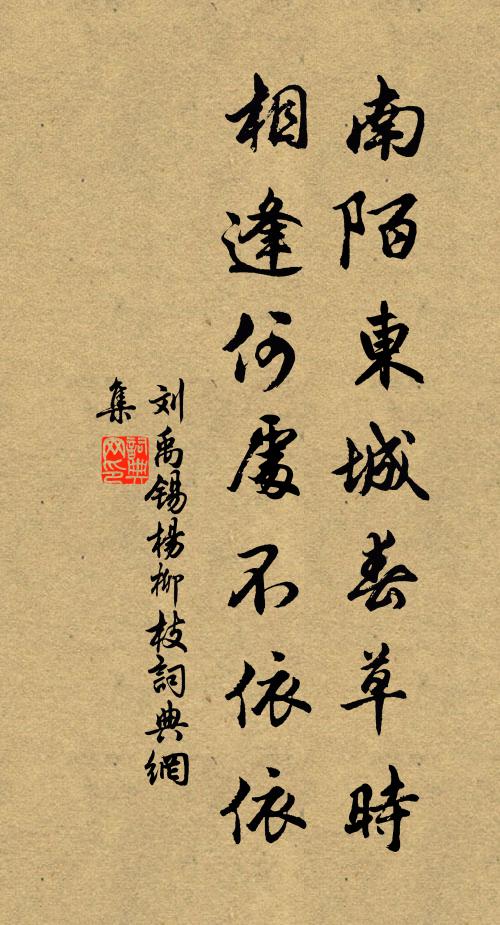 南陌東城春草時
相逢何處不依依
刘禹锡楊柳枝詞典網
集
詞典网印